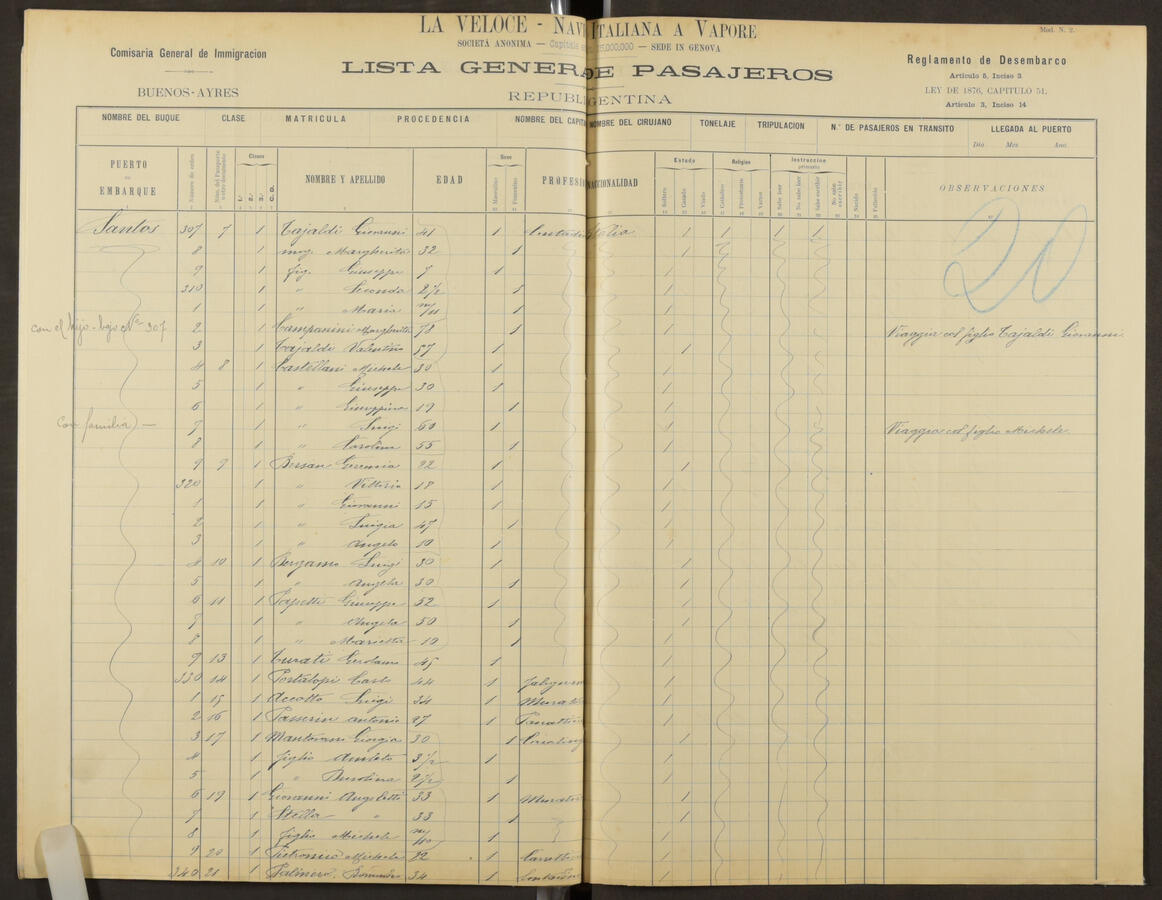 LA VELOCE - NAV ITALIANA A VAPORE
Mod. N. 2.
SOCIETÀ ANONIMA — SEDE IN GENOVA
Comisaria General de Immigracion
LISTA GENER DE PASAJEROS
Reglamento de Desembarco
Articulo 5, Inciso 3
BUENOS-AYRES
REPUBL GENTINA
LEY DE 1876, CAPITULO 51.
Articulo 3, Inciso 14
NOMBRE DEL BUQUE CLASE MATRICULA PROCEDENCIA NOMBRE DEL CAPITA NOMBRE DEL CIRUJANO TONELAJE TRIPULACION N.º DE PASAJEROS EN TRANSITO LLEGADA AL PUERTO
Dia Mes Ano.
PUERTO EMBARQUE Número de orden Clases 1. 2. 3. NOMBRE Y APELLIDO EDAD Sexo Masculino Femenino PROFESIO NACCIONALIDAD Estado Soltero Casado Viudo Religion Catholico Protestante Varios Instruccion primaria Sabe leer No sabe leer Sabe escribir No sabe escribir Nacido Fallecido OBSERVACIONES
Santos 307 7 1 Tajaldi Giovanni 41 1 Contadi Italia 1 1 1 1
20
8 1 mog. Margherita 32 1
9 1 fig. Giuseppe 7 1
310 1 " Secondo 2 1/2 1
1 1 " Maria 1
con el hijo - bajo Nº 307 2 1 Campanini Margherita 78 1 Viaggia col figlio Tajaldi Giovanni
3 1 Tajaldi Valentino 57 1
4 8 1 Castellani Michele 30 1
5 1 " Giuseppe 30 1
6 1 " Giuseppina 19 1
Con familia — 7 1 " Luigi 60 1 Viaggia col figlio Michele
8 1 " Carolina 55 1
9 9 1 Bersan Geremia 22 1
320 1 " Vittorio 18 1
1 1 " Giovanni 15 1
2 1 " Luigia 47 1
3 1 " Angelo 10 1
4 10 1 Bergamo Luigi 30 1
5 1 " Angela 30 1
6 11 1 Papetti Giuseppe 52 1
7 1 " Angela 50 1
8 1 " Marietta 10 1
9 13 1 Turati Girolamo 45 1
330 14 1 44 1
1 15 1 Accotto Luigi 34 1 Murato
2 16 1 Passerin Antonio 27 1
3 17 1 Mantovani Giorgia 30 1 Casaling
4 1 figlio 3 1/2 1
5 1 " 2 1/2 1
6 19 1 Giovanni Angeletti 33 1 Murator
7 1 Stella " 33 1
8 1 figlio Michele 1
9 20 1 Pietronico Michele 22 1
340 21 1 Palinero Domenico 34 1 Contadin